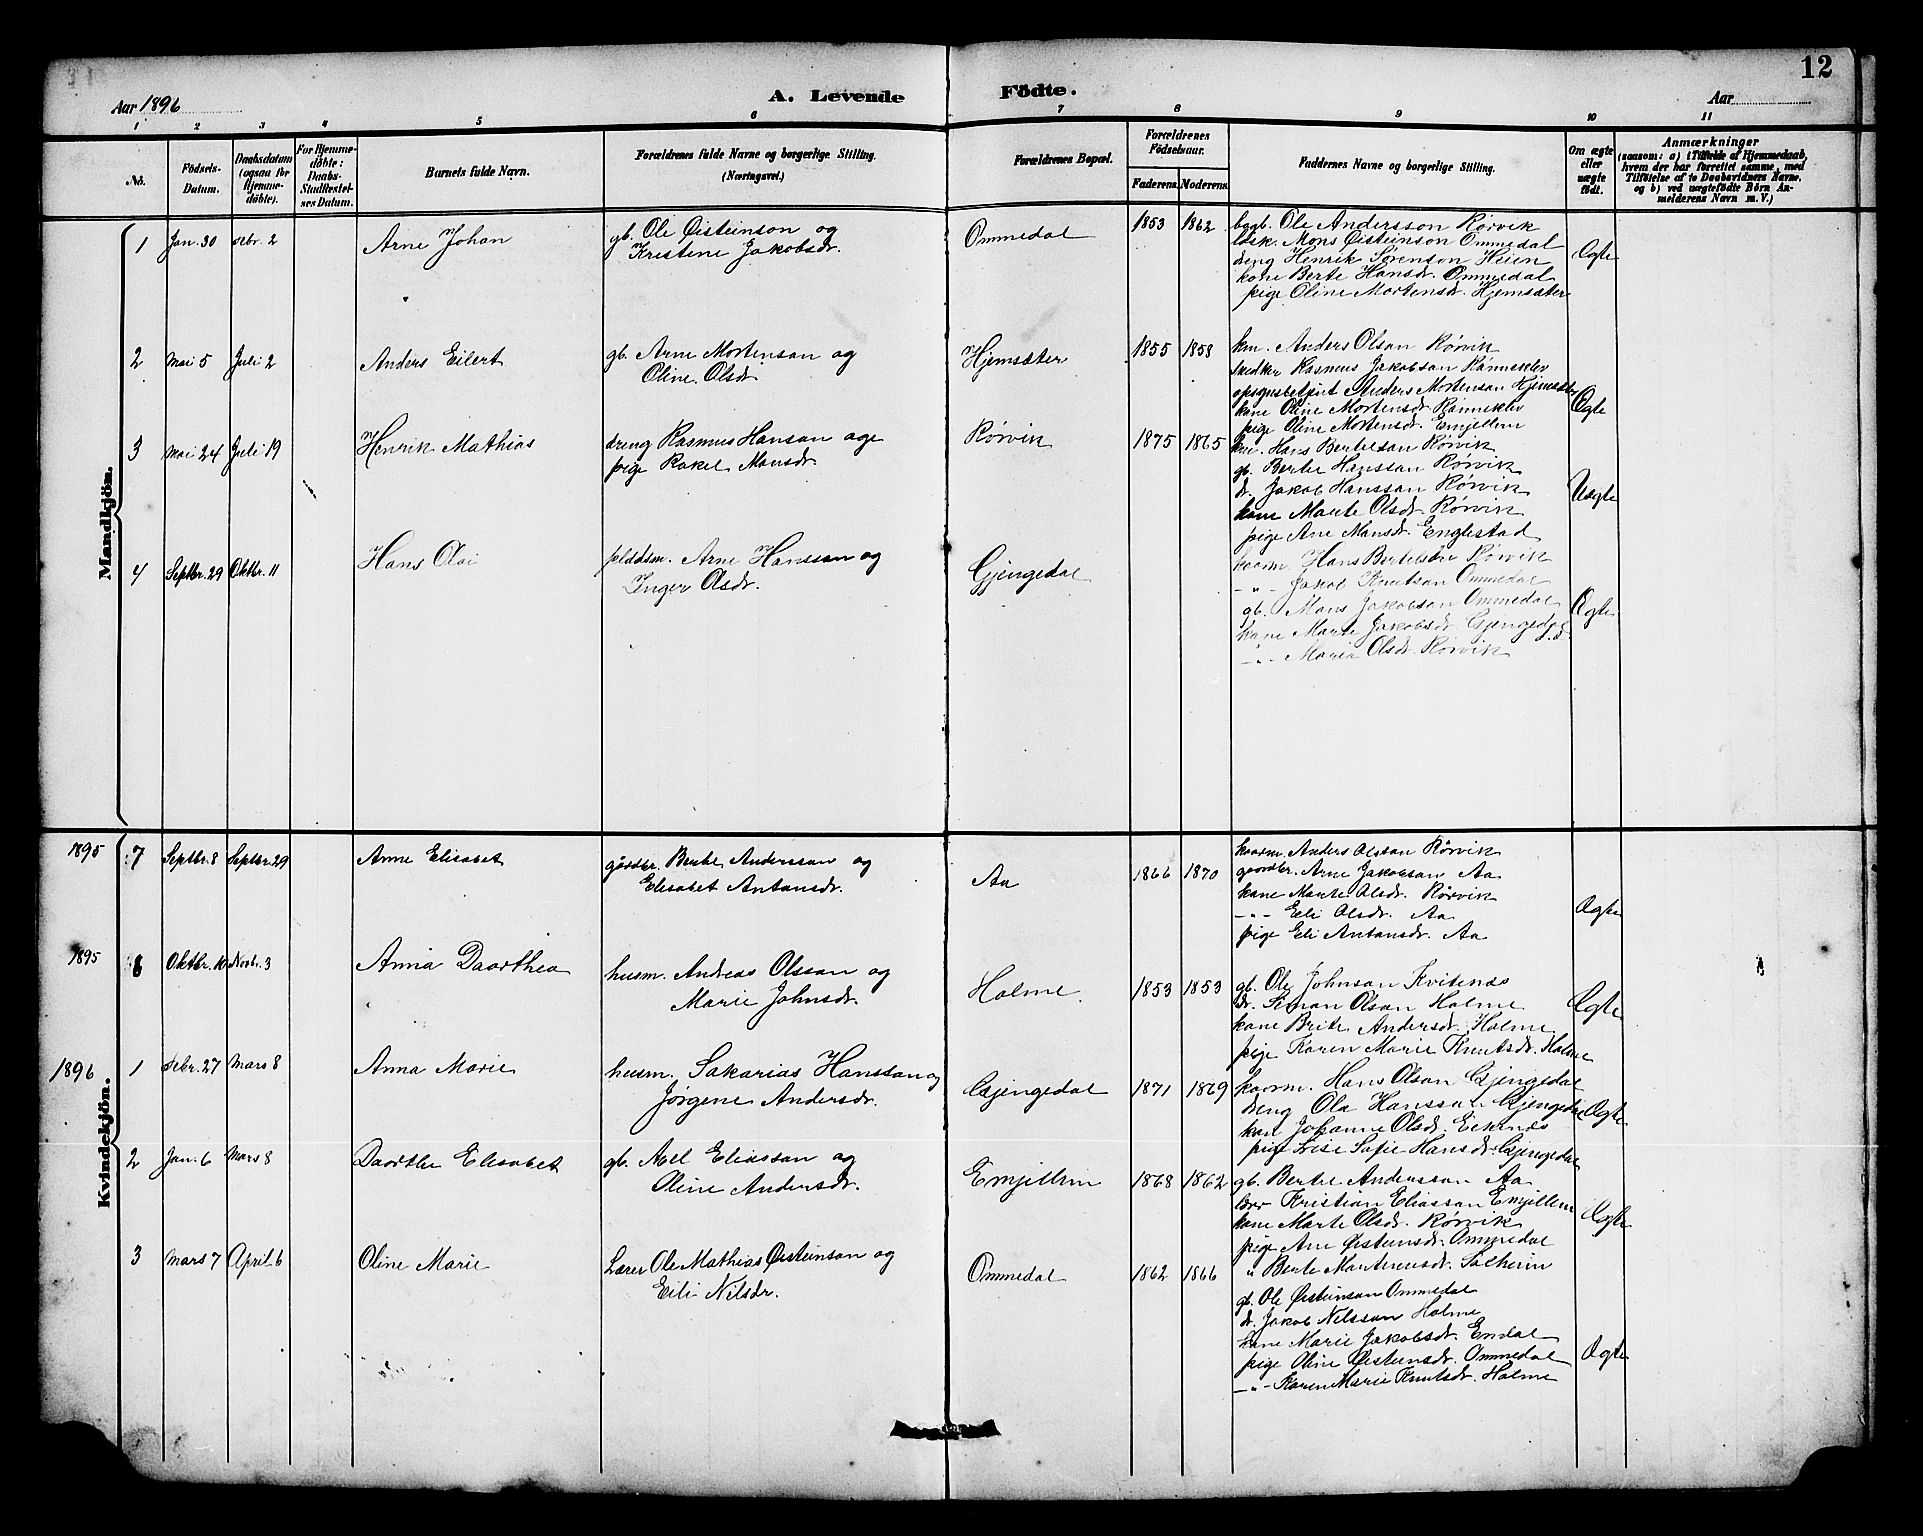 12
Aar 1896
A. Levende Fødte.
Aar
1 2 3 4 5 6 7 8 9 10 11
No.
Fødsels-Datum.
Daabsdatum (ogsaa for Hjemmedøbte).
For Hjemmedøbte: Daabs-Stadfæstelses Datum.
Barnets fulde Navn.
Forældrenes fulde Navne og borgerlige Stilling. (Næringsvei.)
Forældrenes Bopæl.
Forældrenes Fødselsaar.
Faderens. Moderens.
Faddernes Navne og borgerlige Stilling.
Om ægte eller uægte født.
Anmærkninger
(saasom: a) i Tilfælde af Hjemmedaab, hvem der har forrettet samme, med Tilføielse af to Daabsvidners Navne, og b) ved uægtefødte Børn Anmelderens Navn m. V.)
Mandkjön.
1 Jan. 30 Febr. 2 Arne Johan
gb. Ole Øisteinson og
Kristine Jakobsdr.
Ommedal 1853 1862
bggb. Ole Andersson Rørvik
ldsk. Mons Øisteinson Ommedal
dreng Henrik Sørenson Heien
kone Berte Hansdr. Ommedal
pige Oline Mortensdr. Hjemsæter
Ægte
2 Mai 5 Juli 2 Anders Eilert
gb. Arne Mortenson og
Oline Olsdr.
Hjemsæter 1855 1858
km. Anders Olson Rørvik
Rasmus Jakobson Rønneklev
Anders Mortenson Hjemsæter
kone Oline Mortensdr. Rønneklev
pige Oline Mortensdr. Emjellem
Ægte
3 Mai 24 Juli 19 Henrik Mathias
dreng Rasmus Hanson og
pige Rakel Monsdr.
Rørvik 1875 1865
km. Hans Bertelson Rørvik
gb. Berte Hansson Rørvik
dr. Jakob Hansson Rørvik
kone Marte Olsdr. Rørvik
pige Ane Monsdr. Englestad
Uægte
4 Septbr. 29 Oktbr. 11 Hans Olai
pladsm. Arne Hansson og
Inger Olsdr.
Gjengedal
kaarm. Hans Bertelson Rørvik
-"- Jakob Knutson Ommedal
gb. Mons Jakobson Ommedal
kone Marte Jakobsdr. Gjengedal
-"- Maria Olsdr. Rørvik
Ægte
Kvindekjön.
1895 7 Septbr. 8 Septbr. 29 Anne Elisabet
gårdbr. Berte Andersson og
Elisabet Antonsdr.
Aa 1866 1870
kaarm. Anders Olsson Rørvik
gaardbr. Arne Jakobson Aa
kone Marte Olsdr. Rørvik
-"- Eli Olsdr. Aa
pige Eli Antonsdr. Aa
Ægte
1895 8 Oktbr. 10 Novbr. 3 Anna Daarthea
husm. Andreas Olsson og
Marie Johnsdr.
Holme 1853 1853
gb. Ole Johnson Kvitenes
dr. Simon Olson Holme
kone Brite Andersdr. Holme
pige Karen Marie Knutsdr. Holme
Ægte
1896 1 Febr. 27 Mars 8 Anna Marie
husm. Sakarias Hansson og
Jørgene Andersdr.
Gjengedal 1871 1869
kaarm. Hans Olson Gjengedal
dreng Ola Hansson Gjengedal
kone Johanne Olsdr. Eikenes
pige Lise Sofie Hansdr. Gjengedal
Ægte
2 Jan. 6 Mars 8 Daarthe Elisabet
gb. Abel Eliasson og
Oline Andersdr.
Emjellem 1868 1862
gb. Berte Andersson Aa
Kristian Eliasson Emjellem
kone Marte Olsdr. Rørvik
pige Ane Øisteinsdr. Ommedal
" Berte Martensdr. Solheim
Ægte
3 Mars 7 April 6 Oline Marie
Lærer Ole Mathias Øisteinson og
Eili Nilsdr.
Ommedal 1862 1866
gb. Ole Øisteinson Ommedal
dr. Jakob Nilsson Holme
kone Marie Jakobsdr. Endal
pige Oline Øisteinsdr. Ommedal
-"- Karen Marie Knutsdr. Holme
Ægte